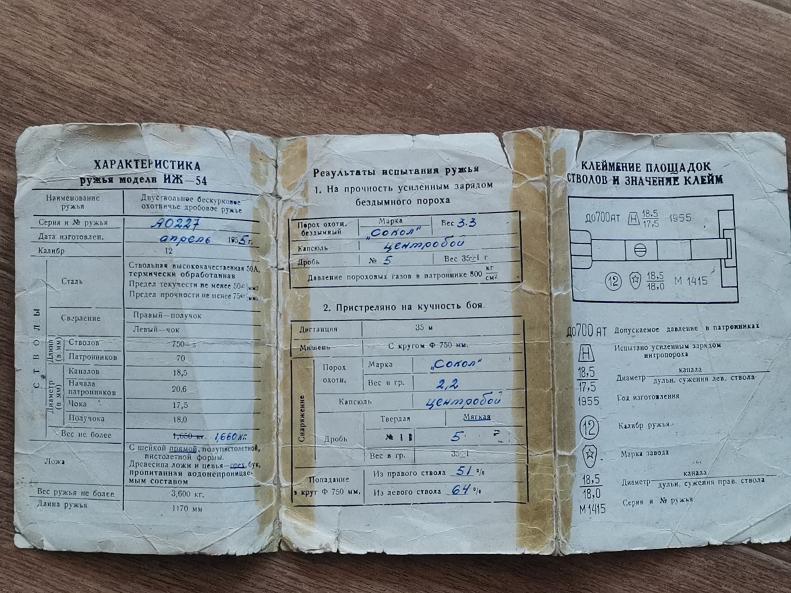 ХАРАКТЕРИСТИКА
ружья модели ИЖ—54
Наименование ружья
Двуствольное бескурковое охотничье дробовое ружье
Серия и № ружья
АО227
Дата изготовлен.
апрель 1955 г.
Калибр
12
СТВОЛЫ
Сталь
Ствольная высококачественная 50А,
термически обработанная
Предел текучести не менее 50
Предел прочности не менее 75
Сверление
Правый—получок
Левый—чок
Длина (в мм)
Стволов
750
Патронников
70
Диаметр (в мм)
Каналов
18,5
Начала патронников
20,6
Чока
17,5
Получока
18,0
Вес не более
1,650 кг. 1,660 кг.
Ложа
С шейкой прямой, полупистолетной,
пистолетной формы.
Древесина ложи и цевья—орех, бук,
пропитанная водонепроницае-
мым составом
Вес ружья не более
3,600 кг.
Длина ружья
1170 мм
Результаты испытания ружья
1. На прочность усиленным зарядом
бездымного пороха
Порох охотн. бездымный
Марка
„Сокол"
Вес 3.3
Капсюль
центробой
Дробь
№ 5
Вес 35±1 г
Давление пороховых газов в патроннике 800 кг/см²
2. Пристреляно на кучность боя.
Дистанция
35 м
Мишень
С кругом Ф 750 мм.
Снаряжение
Порох охотн.
Марка
„Сокол"
Вес в гр.
2,2
Капсюль
центробой
Дробь
Твердая
Мягкая
№
5
Вес в гр.
35±1
Попадание
в круг Ф 750 мм.
Из правого ствола 51 %
Из левого ствола 64 %
КЛЕЙМЕНИЕ ПЛОЩАДОК
СТВОЛОВ И ЗНАЧЕНИЕ КЛЕЙМ
до700 АТ Н 18,5 17,5 1955
12 18,5 18,0 М 1415
до700 АТ Допускаемое давление в патронниках
Н Испытано усиленным зарядом
нитропороха
18,5 17,5 Диаметр канала / дульн. сужения лев. ствола
1955 Год изготовления
12 Калибр ружья
Марка завода
18,5 18,0 Диаметр канала / дульн. сужения прав. ствола
М1415 Серия и № ружья